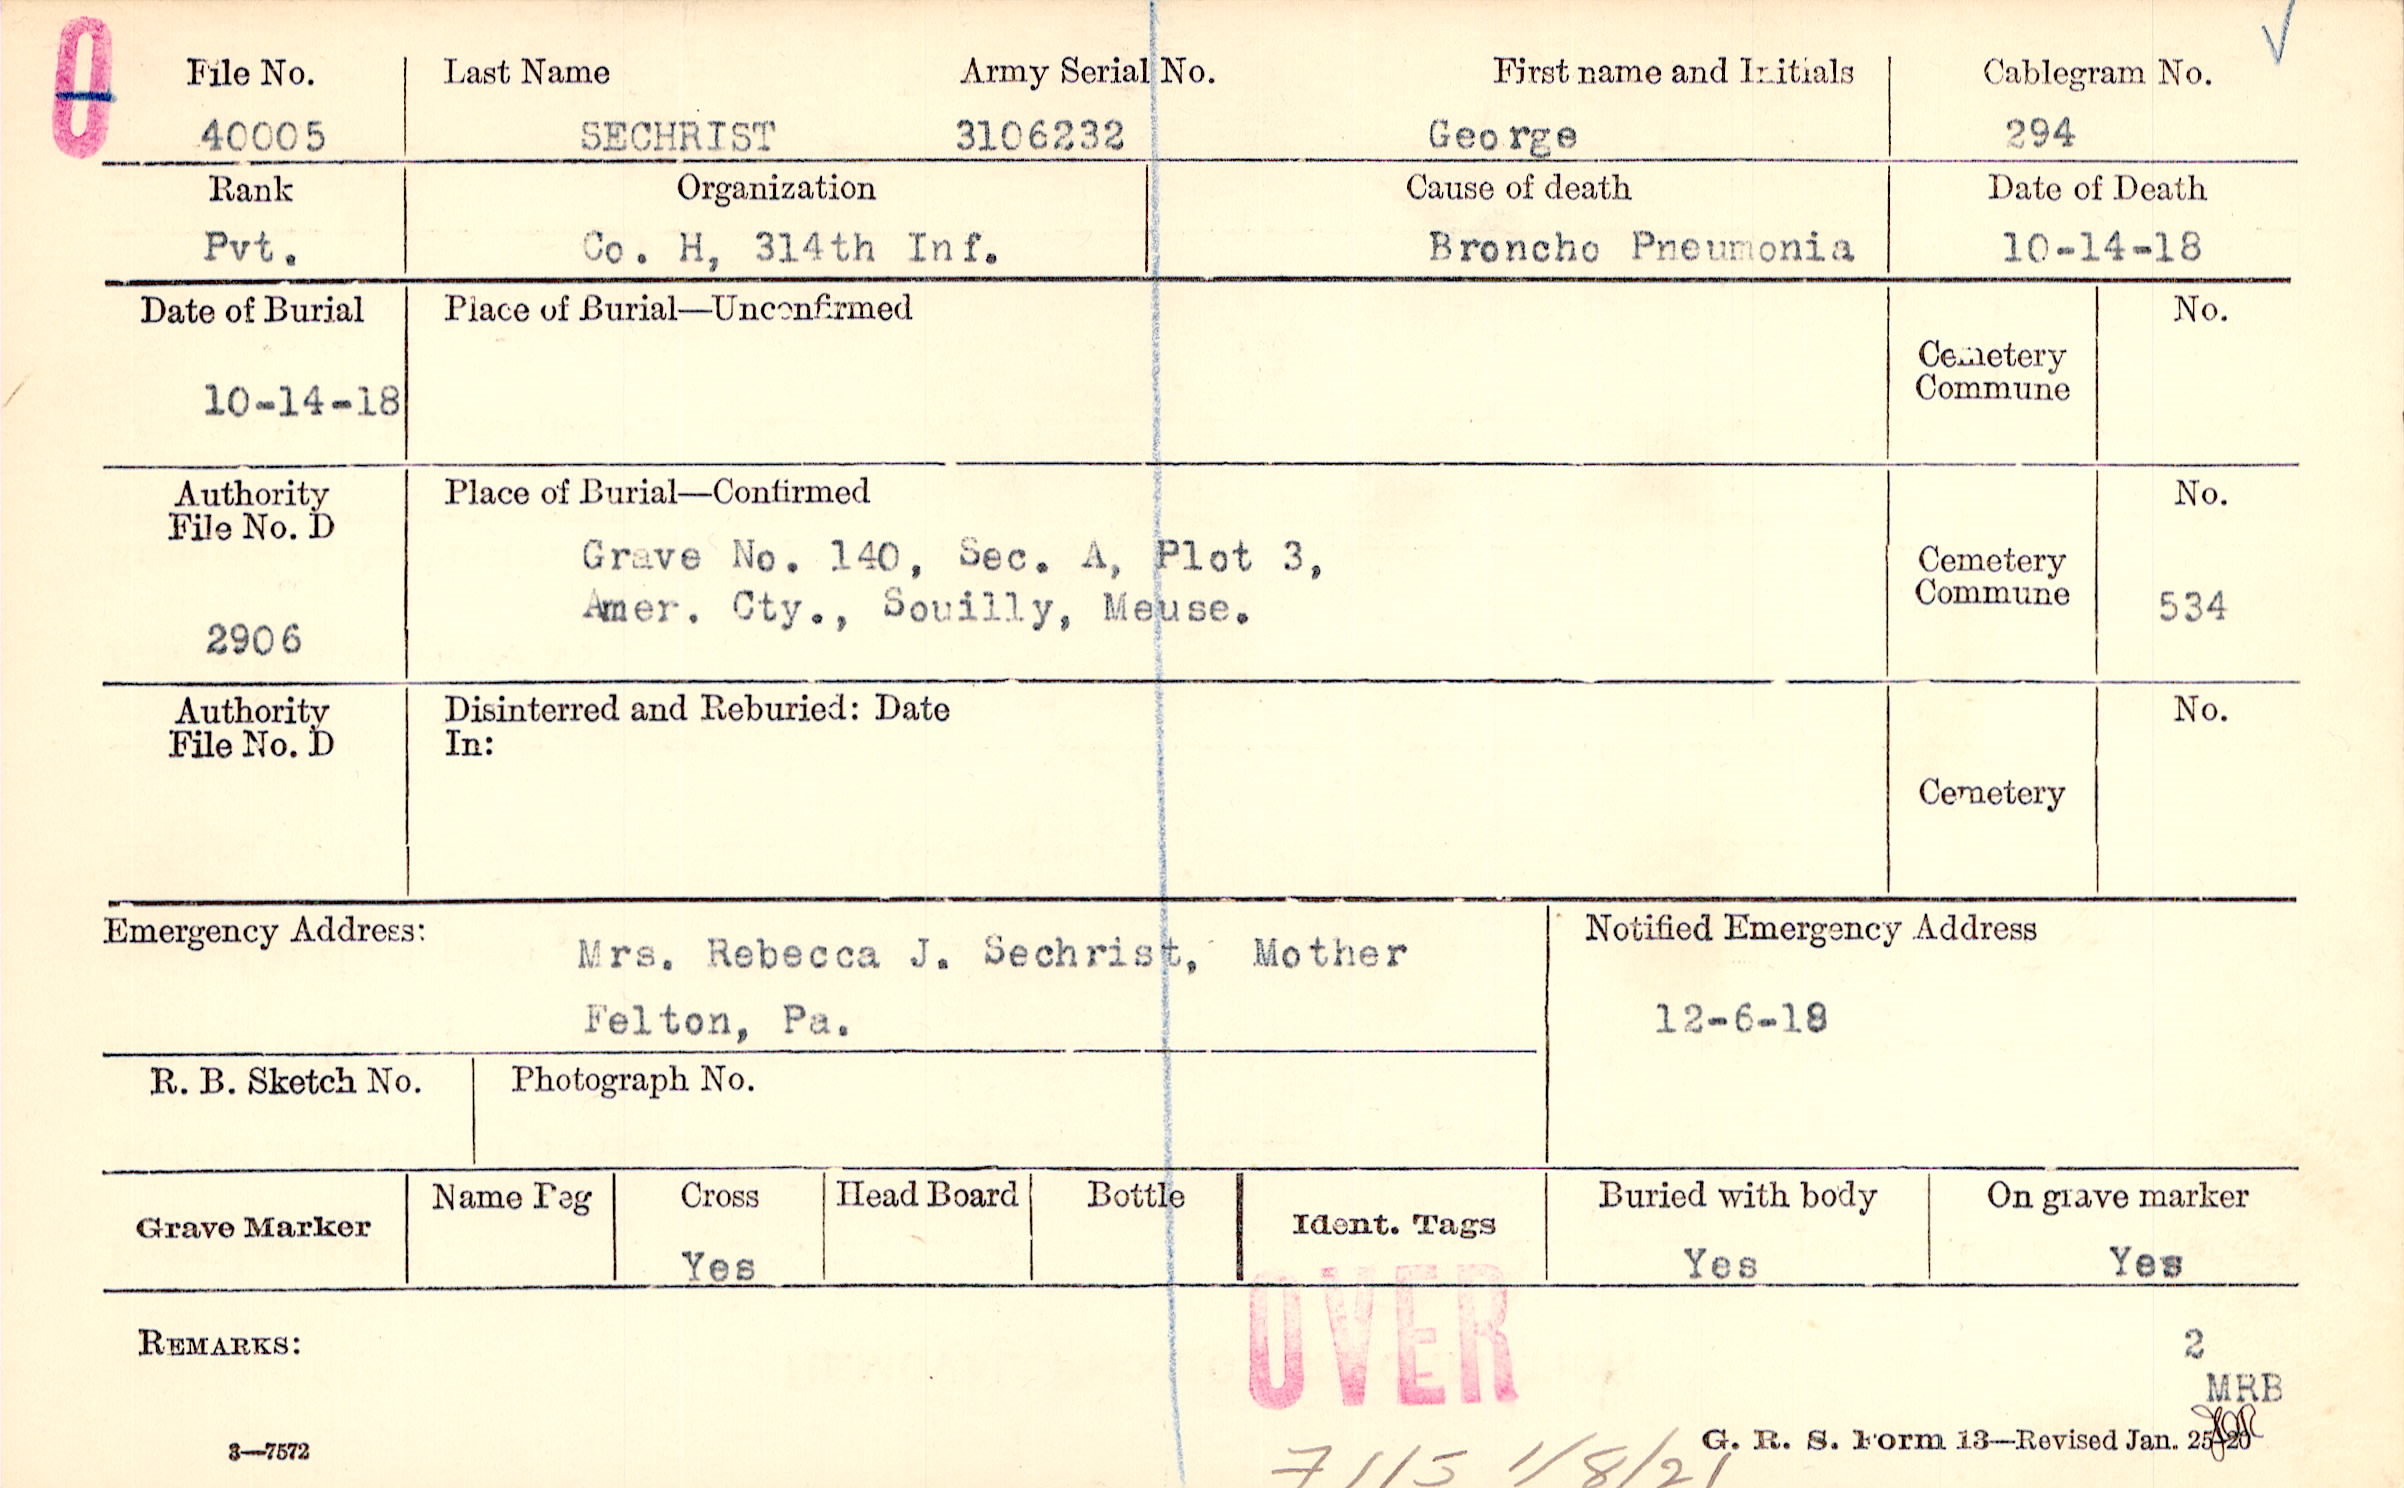 0
File No. Last Name Army Serial No. First name and Initials Cablegram No.
40005 SECHRIST 3106232 George 294
Rank Organization Cause of death Date of Death
Pvt. Co. H, 314th Inf. Broncho Pneumonia 10-14-18
Date of Burial Place of Burial—Unconfirmed No.
Cemetery
Commune
10-14-18
Authority Place of Burial—Confirmed No.
File No. D
Grave No. 140, Sec. A, Plot 3,
Cemetery
Commune
Amer. Cty., Souilly, Meuse. 534
2906
Authority Disinterred and Reburied: Date No.
File No. D In:
Cemetery
Emergency Address: Notified Emergency Address
Mrs. Rebecca J. Sechrist, Mother
Felton, Pa. 12-6-18
R. B. Sketch No. Photograph No.
Name Peg Cross Head Board Bottle Buried with body On grave marker
Grave Marker Ident. Tags
Yes Yes Yes
OVER
REMARKS: 2
MRB
3—7572 G. R. S. Form 13—Revised Jan. 25-20
7115 1/8/21